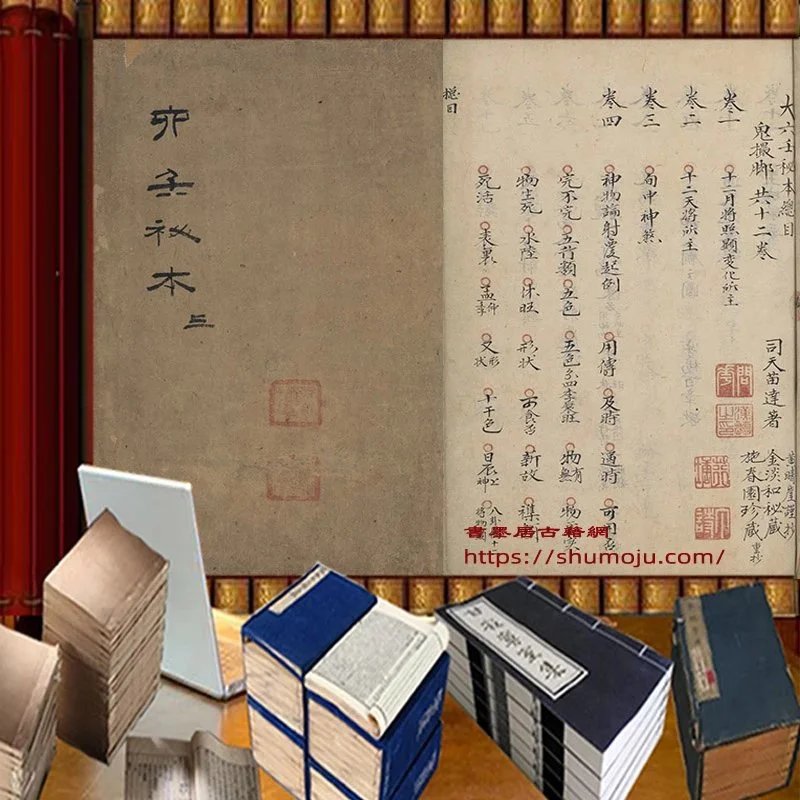 六壬祕本
上
大六壬祕本總目
鬼撮脚 共十二卷 司天苗達著
卷一 十二月將照顯變化所主
卷二 十二天將所主
卷三 旬中神煞
卷四 神物論射覆起例 用傳 及時 通時 可用
完不完 五行類 五色 五色分四季衰旺 物有無
物生死 水陸 休旺 形狀 可食否 新故
死活 表裏 孟仲季 又形狀 十干色 日辰上神
總目
金淡和祕藏
施眷園珍藏
書墨居古籍網
https://shumoju.com/